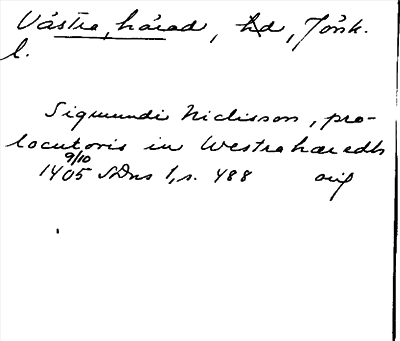 Västra härad, hd, Jönk.
l.
Sigmundi Niclisson, pro-
locutoris in Westrahæredh
9/10
1405 SDns 1, s. 488 orig